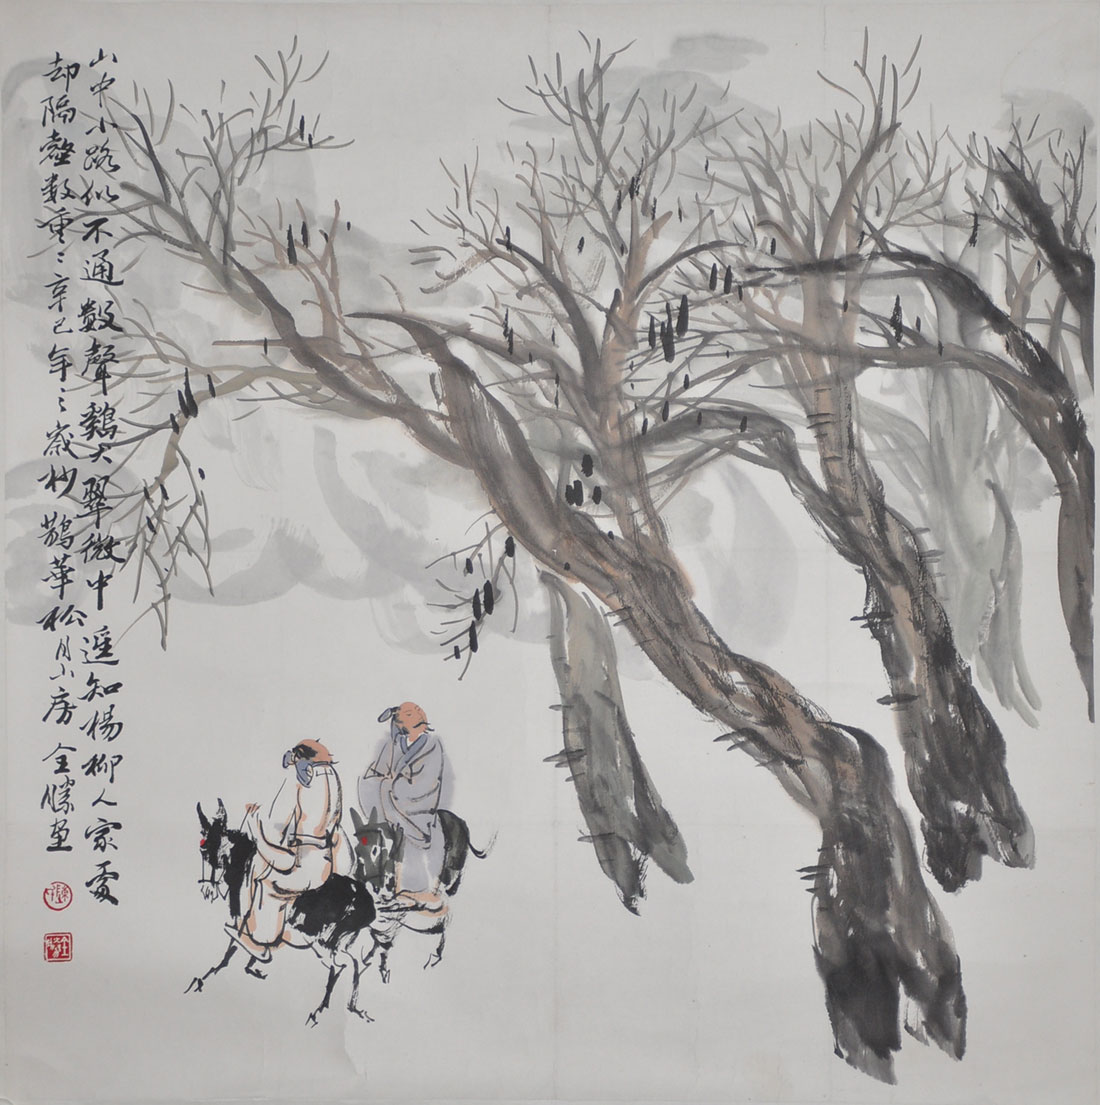 山中小路似不通數聲鷄犬翠微中遥知楊柳人家處
却隔巒数重〻辛巳年〻歲杪鵲華松月小房全勝画